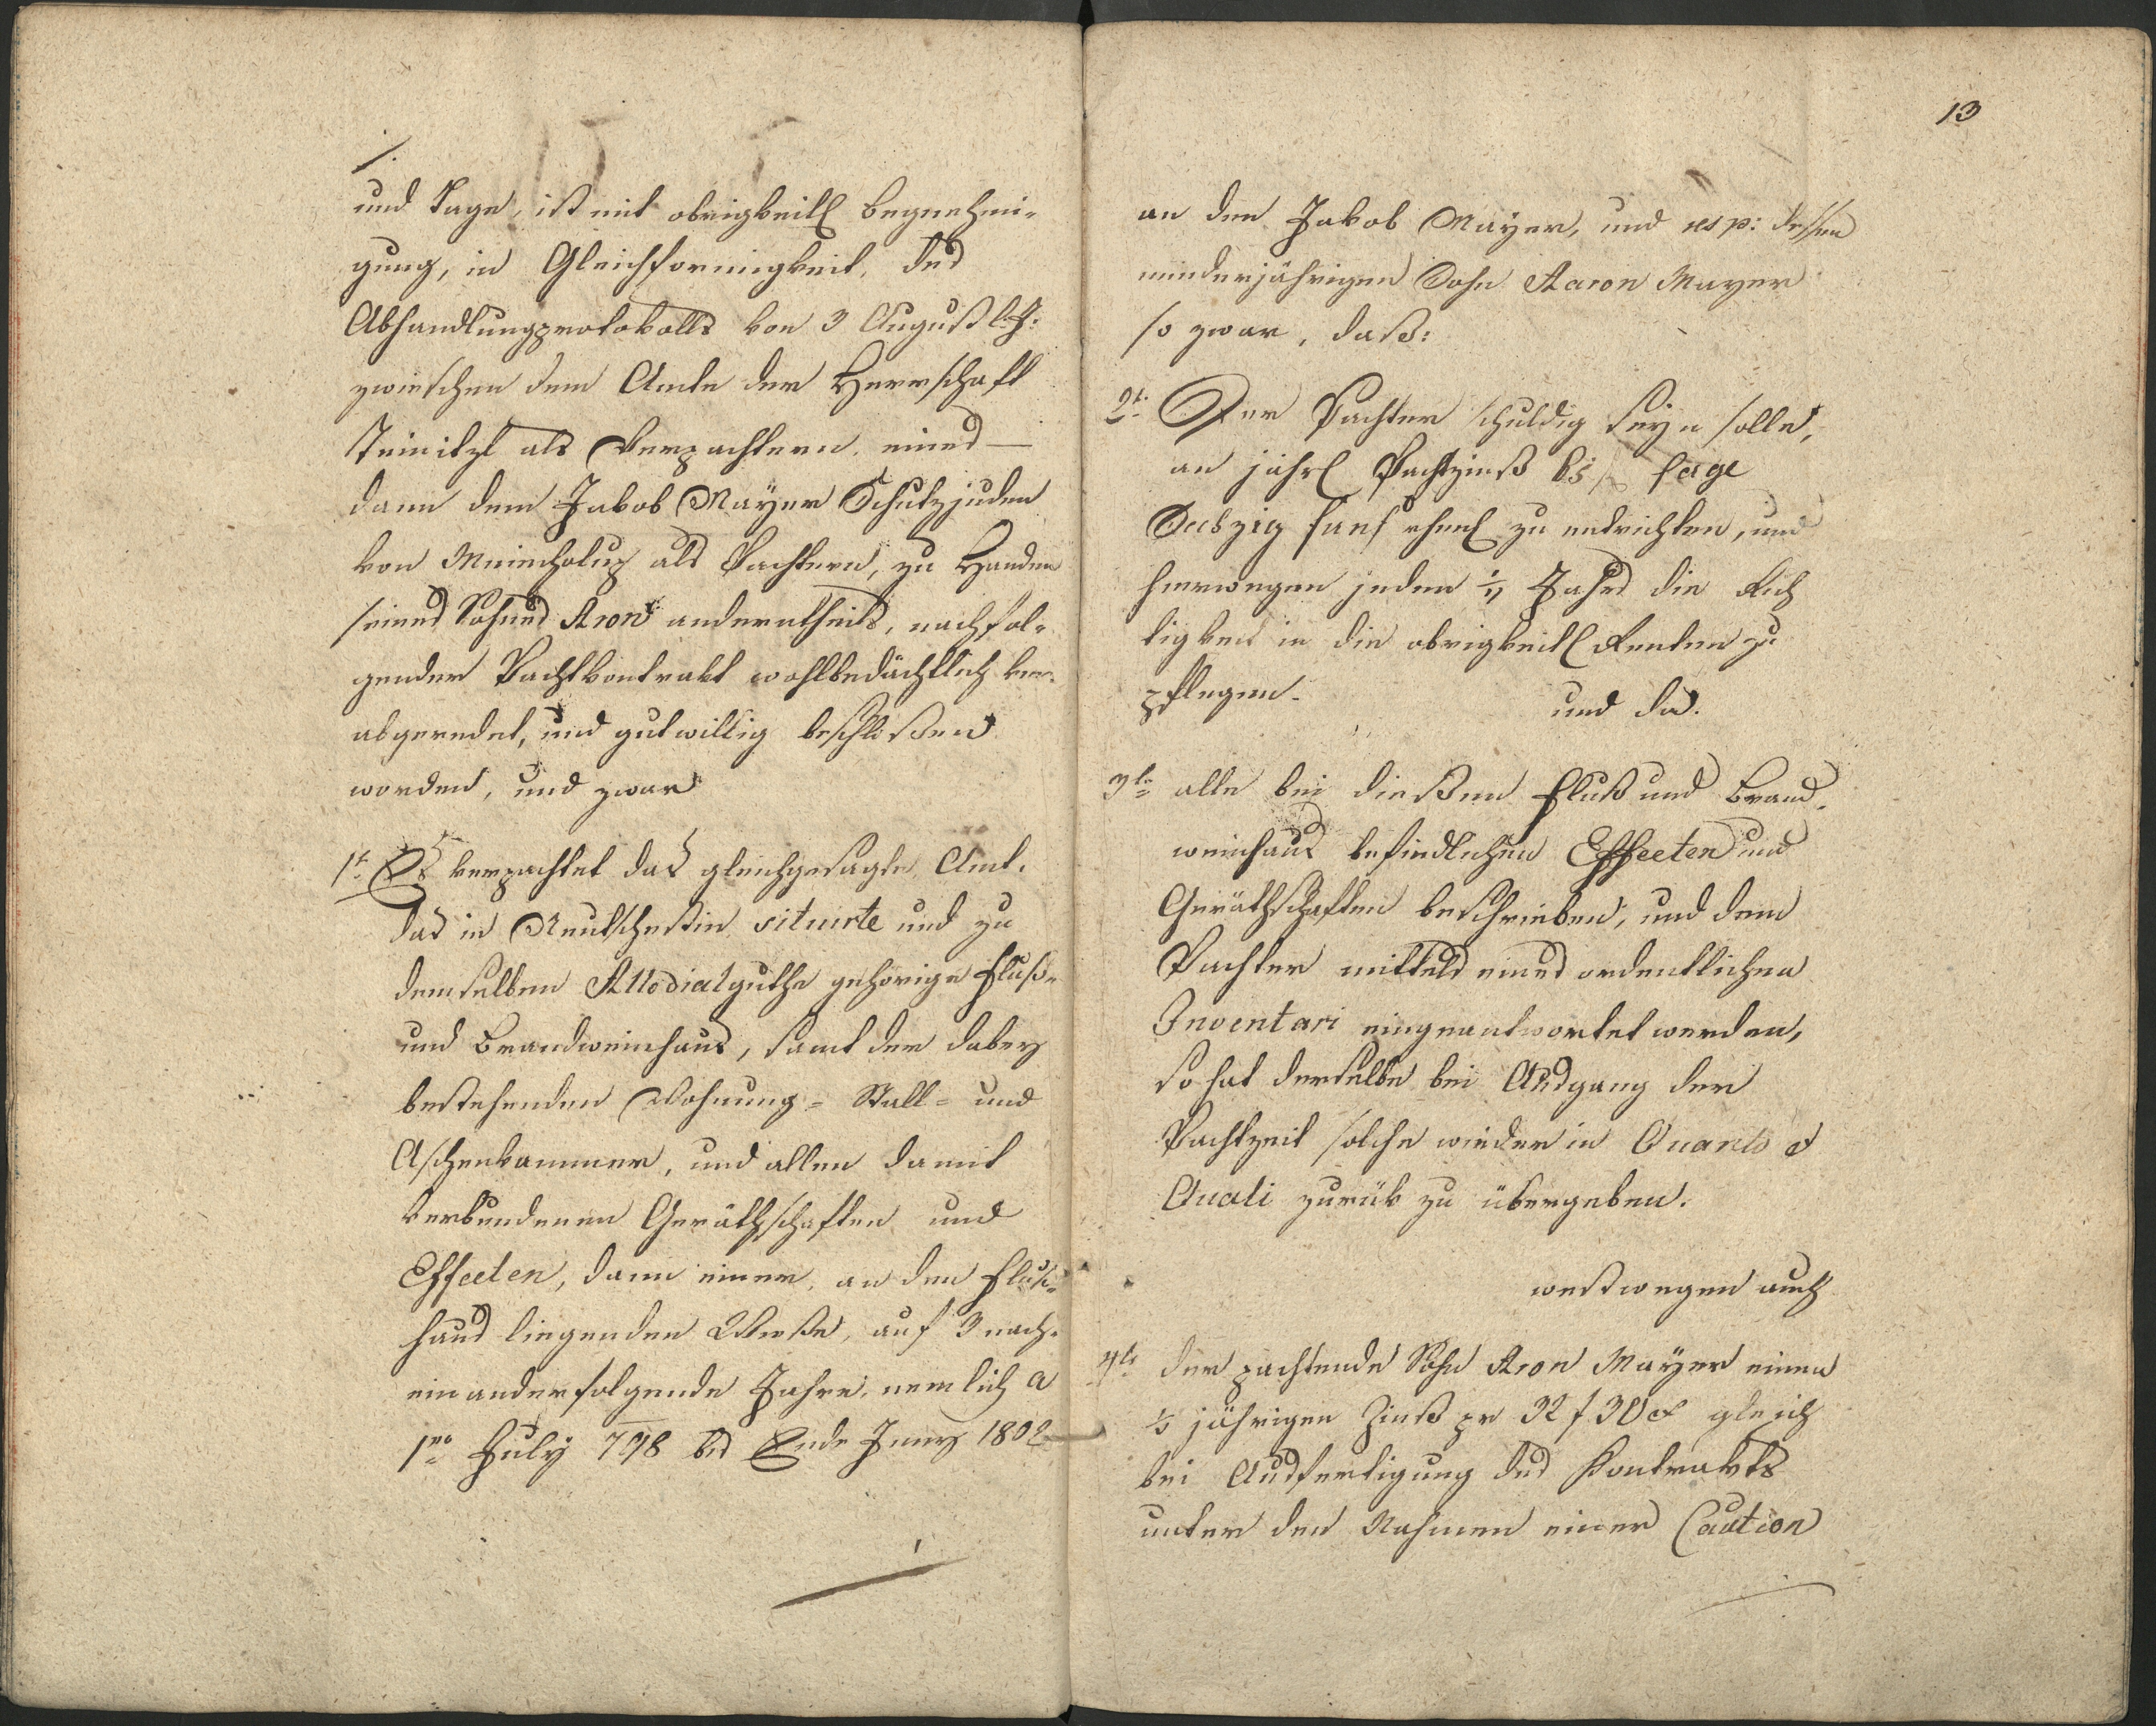 und Tage, ist mit obrigkeitl begnehmi-
gung, in Gleichformigkeit, des
Abhandlungsprotokolls von 3 August l: J:
zwieschen dem Amte der Herrschaft
als Verpachtern, eines —
dann dem Jakob Mayer Schutzjuden
von als Pachtern, zu Handen
seines Sohnes Aron anderntheils, nachfol-
gender Pachtkontrakt wohlbedächtlich ver-
abgeredet, und gutwillig beschloßen
worden, und zwar
1t. Es verpachtet das gleichgesagte Amt.
das in situirte und zu
demselben Allodialguthe gehorige Fluß-
und Brandweinhaus, samt der dabey
bestehenden Wohnung- Stall- und
Aschenkammer, und allen damit
verbundenen Geräthschaften und
Effecten, dann einer, an den Fluß-
haus liegenden Wieße, auf 3 nach-
einanderfolgende Jahre, nemlich a
1mo July 798 bis Ende Juny 1802
13
an den Jakob Mayer, und resp: dessen
minderjährigen Sohn Aaron Mayer
so zwar, daß:
2t. Der Pachter schuldig seyn solle,
an jährl Pachtzinß 65 f sage
Sechzig fünf rheinl zu entrichten, und
hierwegen jeden 1/2 Jahrs die Rich
tigkeit in die obrigkeitl Renten zu
pflegen. und da.
3te alle bei dießem Fluß und Brand-
weinhaus befindlichen Effecten und
Geräthschaften beschrieben, und dem
Pachter mittels eines ordentlichen
Inventari eingeantwortet werden,
so hat derselbe bei Ausgang der
Pachtzeit solche wieder in Quanto et
Quali zurük zu übergeben.
westwegen auch
4te der pachtende Sohn Aron Mayer einen
1/2 jährigen Zinß pr 32 f 30 x gleich
bei Ausfertigung des Kontrakts
unter den Nahmen einer Caution